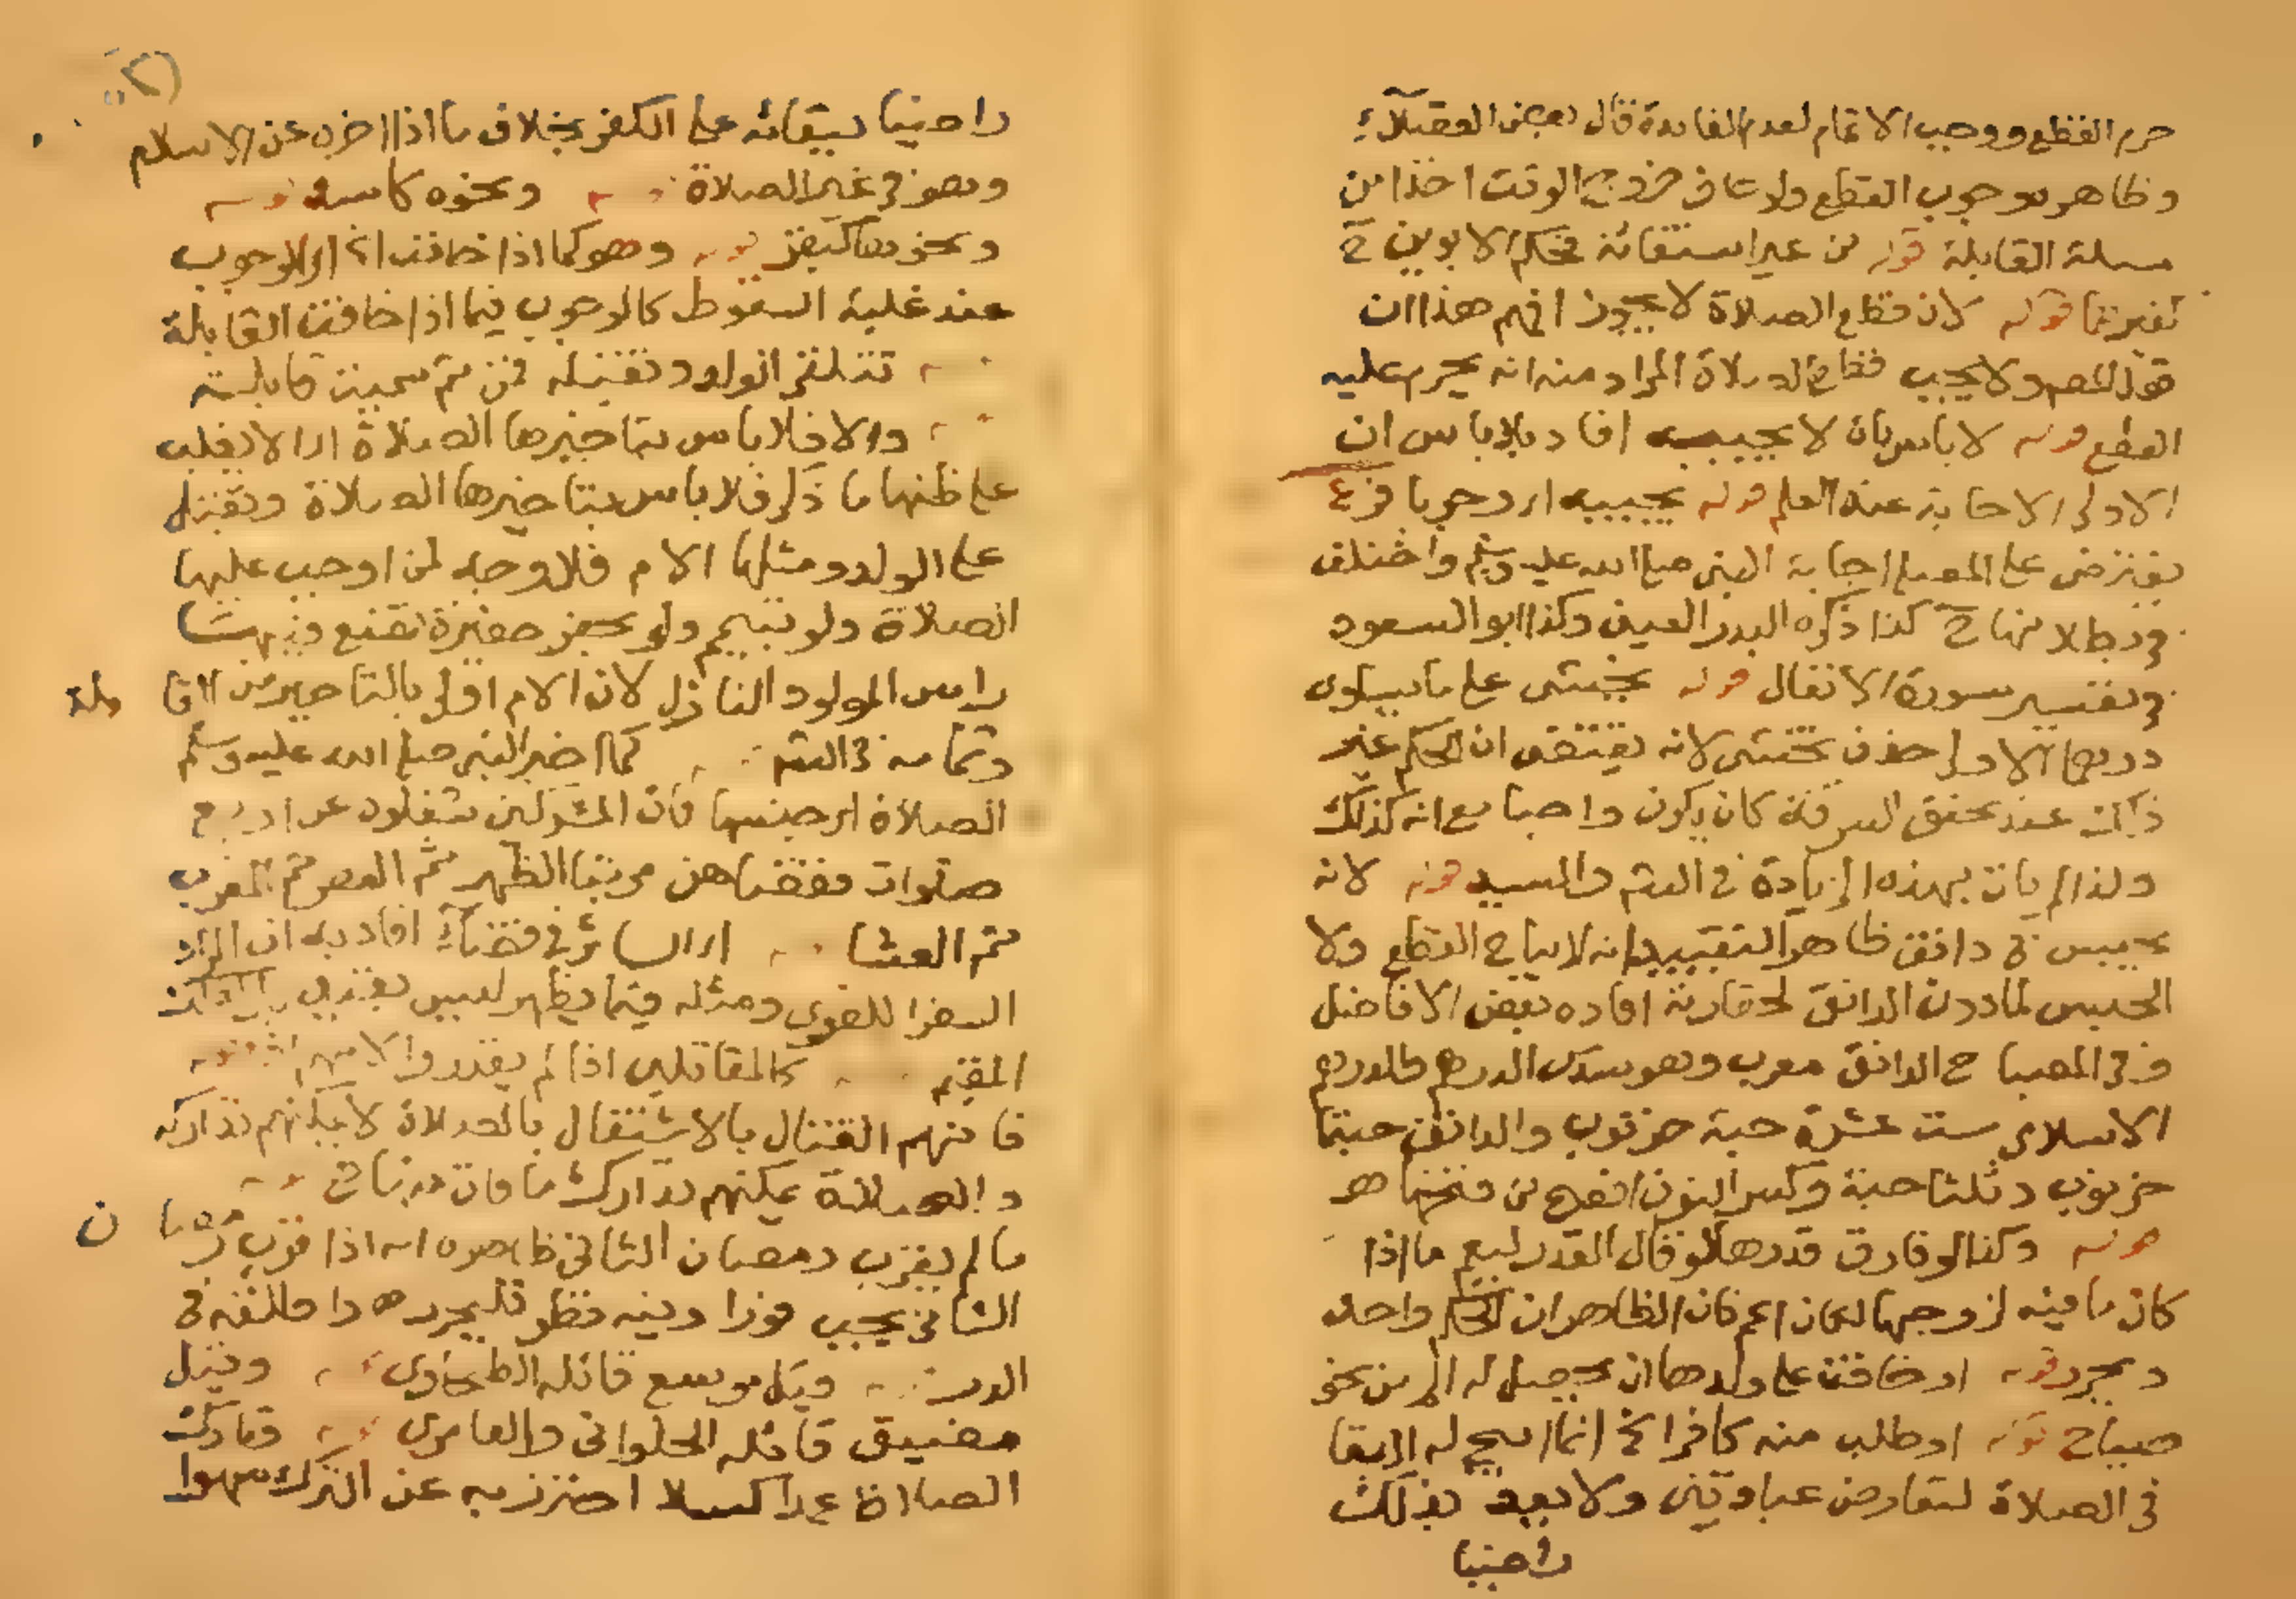 حرم القطع ووجب الاتمام لعدم الفائدة قال بعض الفضلاء
وظاهره وجوب القطع ولو خاف خروج الوقت اخذا من
مسئلة القابلة قوله من غير استغاثة فحكم الابوين ح
كغيرهما قوله لان قطع الصلاة لا يجوز افهم هذا ان
قول المص ولا يجب قطع الصلاة المراد منه انه يحرم عليه
القطع قوله لا باس بان لا يجيبه افاد بلا باس ان
الاولى الاجابة عند العلم قوله يجيبه اي وجوبا فرع
يفترض على المصلي اجابة النبي صلى الله عليه وسلم واختلف
في بطلانها ح كذا ذكره البدر العيني وكذا ابو السعود
في تفسير سورة الانفال قوله يخشى على ما يساوي
درهما الاولى حذف يخشى لانه يقتضي ان الحكم عند
ذلك عند تحقق السرقة كان يكون واجبا مع انه كذلك
ولذا لم يات بهذه الزيادة في الشرح والسيد قوله لانه
يحبس في دانق ظاهر التقييد انه لا يباح القطع ولا
الحبس لما دون الدانق لحقارته افاده بعض الافاضل
وفي المصباح الدانق معرب وهو سدس الدرهم والدرهم
الاسلامي ست عشرة حبة خرنوب والدانق حبتا
خرنوب وثلثا حبة وكسر النون افصح من فتحها
قوله وكذا لو فارق قدرها لو قال القدر ليعم ما اذا
كان ما فيه لزوجها لكان اعم فان الظاهر ان الحكم واحد
قوله او خافت على ولدها ان يحصل له الم من نحو
صياح قوله او طلب منه كافر الخ انما ابيح له الابقا
في الصلاة لتعارض عبادتين ولا يعد بذلك
راضيا
راضيا ببقائه على الكفر بخلاف ما اذا اخره عن الاسلام
وهو في غير الصلاة قوله ونحوه كاسد قوله
ونحوها كبئر قوله وهو كما اذا خافت الخ اي الوجوب
عند غلبة السقوط كالوجوب فيما اذا خافت القابلة
تتلقى الولد وتقبله فمن ثم سميت قابلة
والا فلا باس بتاخيرها الصلاة اي الا يغلب
على ظنها ما ذكر فلا باس بتاخيرها الصلاة وتقبل
على الولد ومثلها الام فلا وجه لمن اوجب عليها
الصلاة ولو بتيمم ولو بحفر حفيرة تضع فيها
راس المولود النازل لان الام اولى بالتاخير من القابلة
وتمامه في الشرح كما اخر النبي صلى الله عليه وسلم
الصلاة اي جنسها فان المشركين شغلوه عن اربع
صلوات فقضاهن مرتبا الظهر ثم العصر ثم المغرب
ثم العشا قوله افاد به ان المراد
السفر اللغوي ومثله فيما يظهر
المقيم كالمقاتلين اذا لم يقدروا
فانهم القتال بالاشتغال بالصلاة لا يمكنهم تداركه
والصلاة يمكنهم تدارك ما فات
ما لم يقرب رمضان الثاني ظاهره انه اذا قرب رمضان
الثاني يجب فورا وفيه نظر فليحرر
الدرس قوله وقيل موسع قائله الطحاوي قوله وقيل
مضيق قائله الحلواني والعامري قوله وتارك
الصلاة عمدا كسلا احترز به عن الترك سهوا